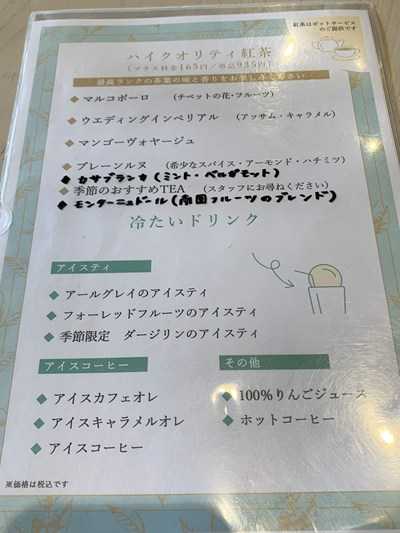 紅茶はポットサービス
のご提供です
ハイクオリティ紅茶
(プラス料金165円/単品935円)
最高ランクの茶葉の味と香りをお楽しみください
◆ マルコポーロ (チベットの花・フルーツ)
◆ ウエディングインペリアル (アッサム・キャラメル)
◆ マンゴーヴォヤージュ
◆ プレーンルヌ (希少なスパイス・アーモンド・ハチミツ)
◆ カサブランカ (ミント・ベルガモット)
◆ 季節のおすすめTEA (スタッフにお尋ねください)
◆ モンターニュドール (南国フルーツのブレンド)
冷たいドリンク
アイスティ
◆ アールグレイのアイスティ
◆ フォーレッドフルーツのアイスティ
◆ 季節限定 ダージリンのアイスティ
アイスコーヒー
◆ アイスカフェオレ
◆ アイスキャラメルオレ
◆ アイスコーヒー
その他
◆ 100%りんごジュース
◆ ホットコーヒー
※価格は税込です